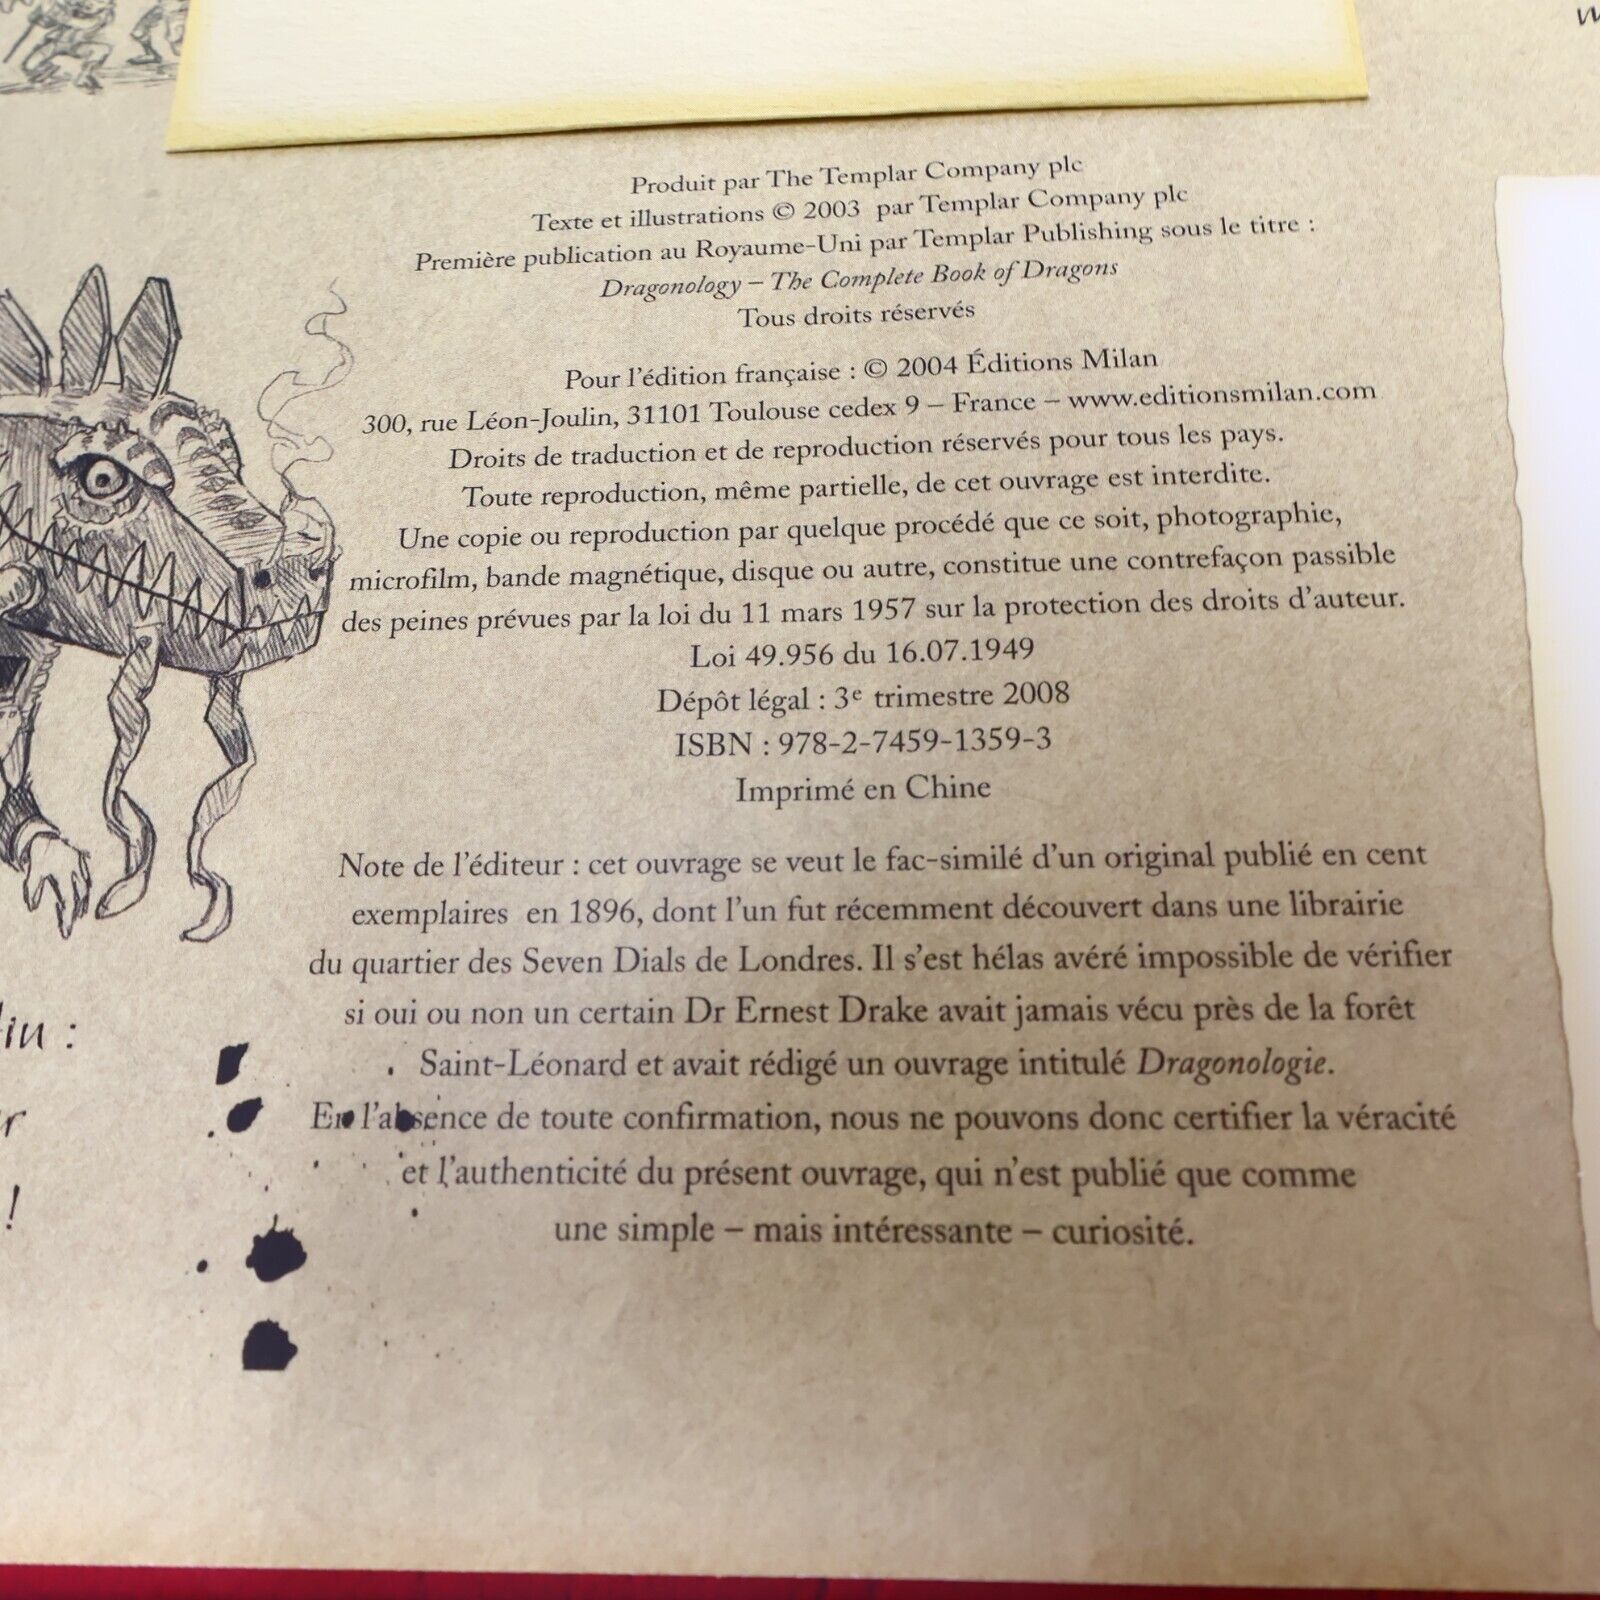 Produit par The Templar Company plc
Texte et illustrations © 2003 par Templar Company plc
Première publication au Royaume-Uni par Templar Publishing sous le titre :
Dragonology – The Complete Book of Dragons
Tous droits réservés
Pour l'édition française : © 2004 Éditions Milan
300, rue Léon-Joulin, 31101 Toulouse cedex 9 – France – www.editionsmilan.com
Droits de traduction et de reproduction réservés pour tous les pays.
Toute reproduction, même partielle, de cet ouvrage est interdite.
Une copie ou reproduction par quelque procédé que ce soit, photographie,
microfilm, bande magnétique, disque ou autre, constitue une contrefaçon passible
des peines prévues par la loi du 11 mars 1957 sur la protection des droits d'auteur.
Loi 49.956 du 16.07.1949
Dépôt légal : 3e trimestre 2008
ISBN : 978-2-7459-1359-3
Imprimé en Chine
Note de l'éditeur : cet ouvrage se veut le fac-similé d'un original publié en cent
exemplaires en 1896, dont l'un fut récemment découvert dans une librairie
du quartier des Seven Dials de Londres. Il s'est hélas avéré impossible de vérifier
si oui ou non un certain Dr Ernest Drake avait jamais vécu près de la forêt
Saint-Léonard et avait rédigé un ouvrage intitulé Dragonologie.
En l'absence de toute confirmation, nous ne pouvons donc certifier la véracité
et l'authenticité du présent ouvrage, qui n'est publié que comme
une simple – mais intéressante – curiosité.